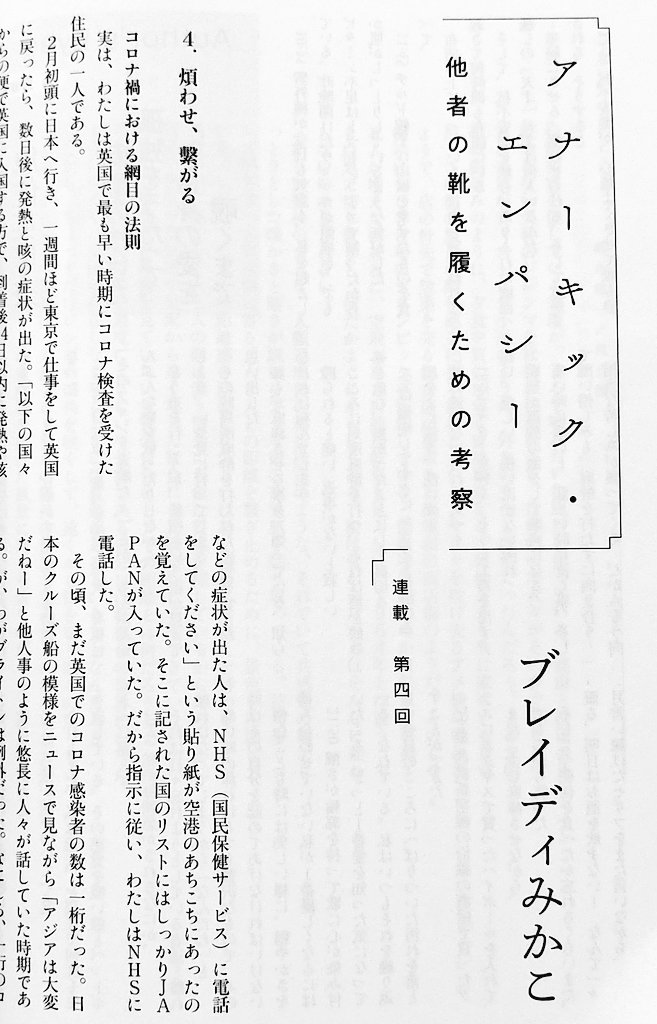 アナーキック・
エンパシー
他者の靴を履くための考察
ブレイディみかこ
連載 第四回
4. 煩わせ、繫がる
コロナ禍における網目の法則
実は、わたしは英国で最も早い時期にコロナ検査を受けた
住民の一人である。
2月初頭に日本へ行き、一週間ほど東京で仕事をして英国
に戻ったら、数日後に発熱と咳の症状が出た。「以下の国々
からの便で英国に入国する方で、到着後14日以内に発熱や咳
などの症状が出た人は、NHS(国民保健サービス)に電話
をしてください」という貼り紙が空港のあちこちにあったの
を覚えていた。そこに記された国のリストにはしっかりJA
PANが入っていた。だから指示に従い、わたしはNHSに
電話した。
その頃、まだ英国でのコロナ感染者の数は一桁だった。日
本のクルーズ船の模様をニュースで見ながら「アジアは大変
だねー」と他人事のように悠長に人々が話していた時期であ
る。が、わがブライトンは例外だった。